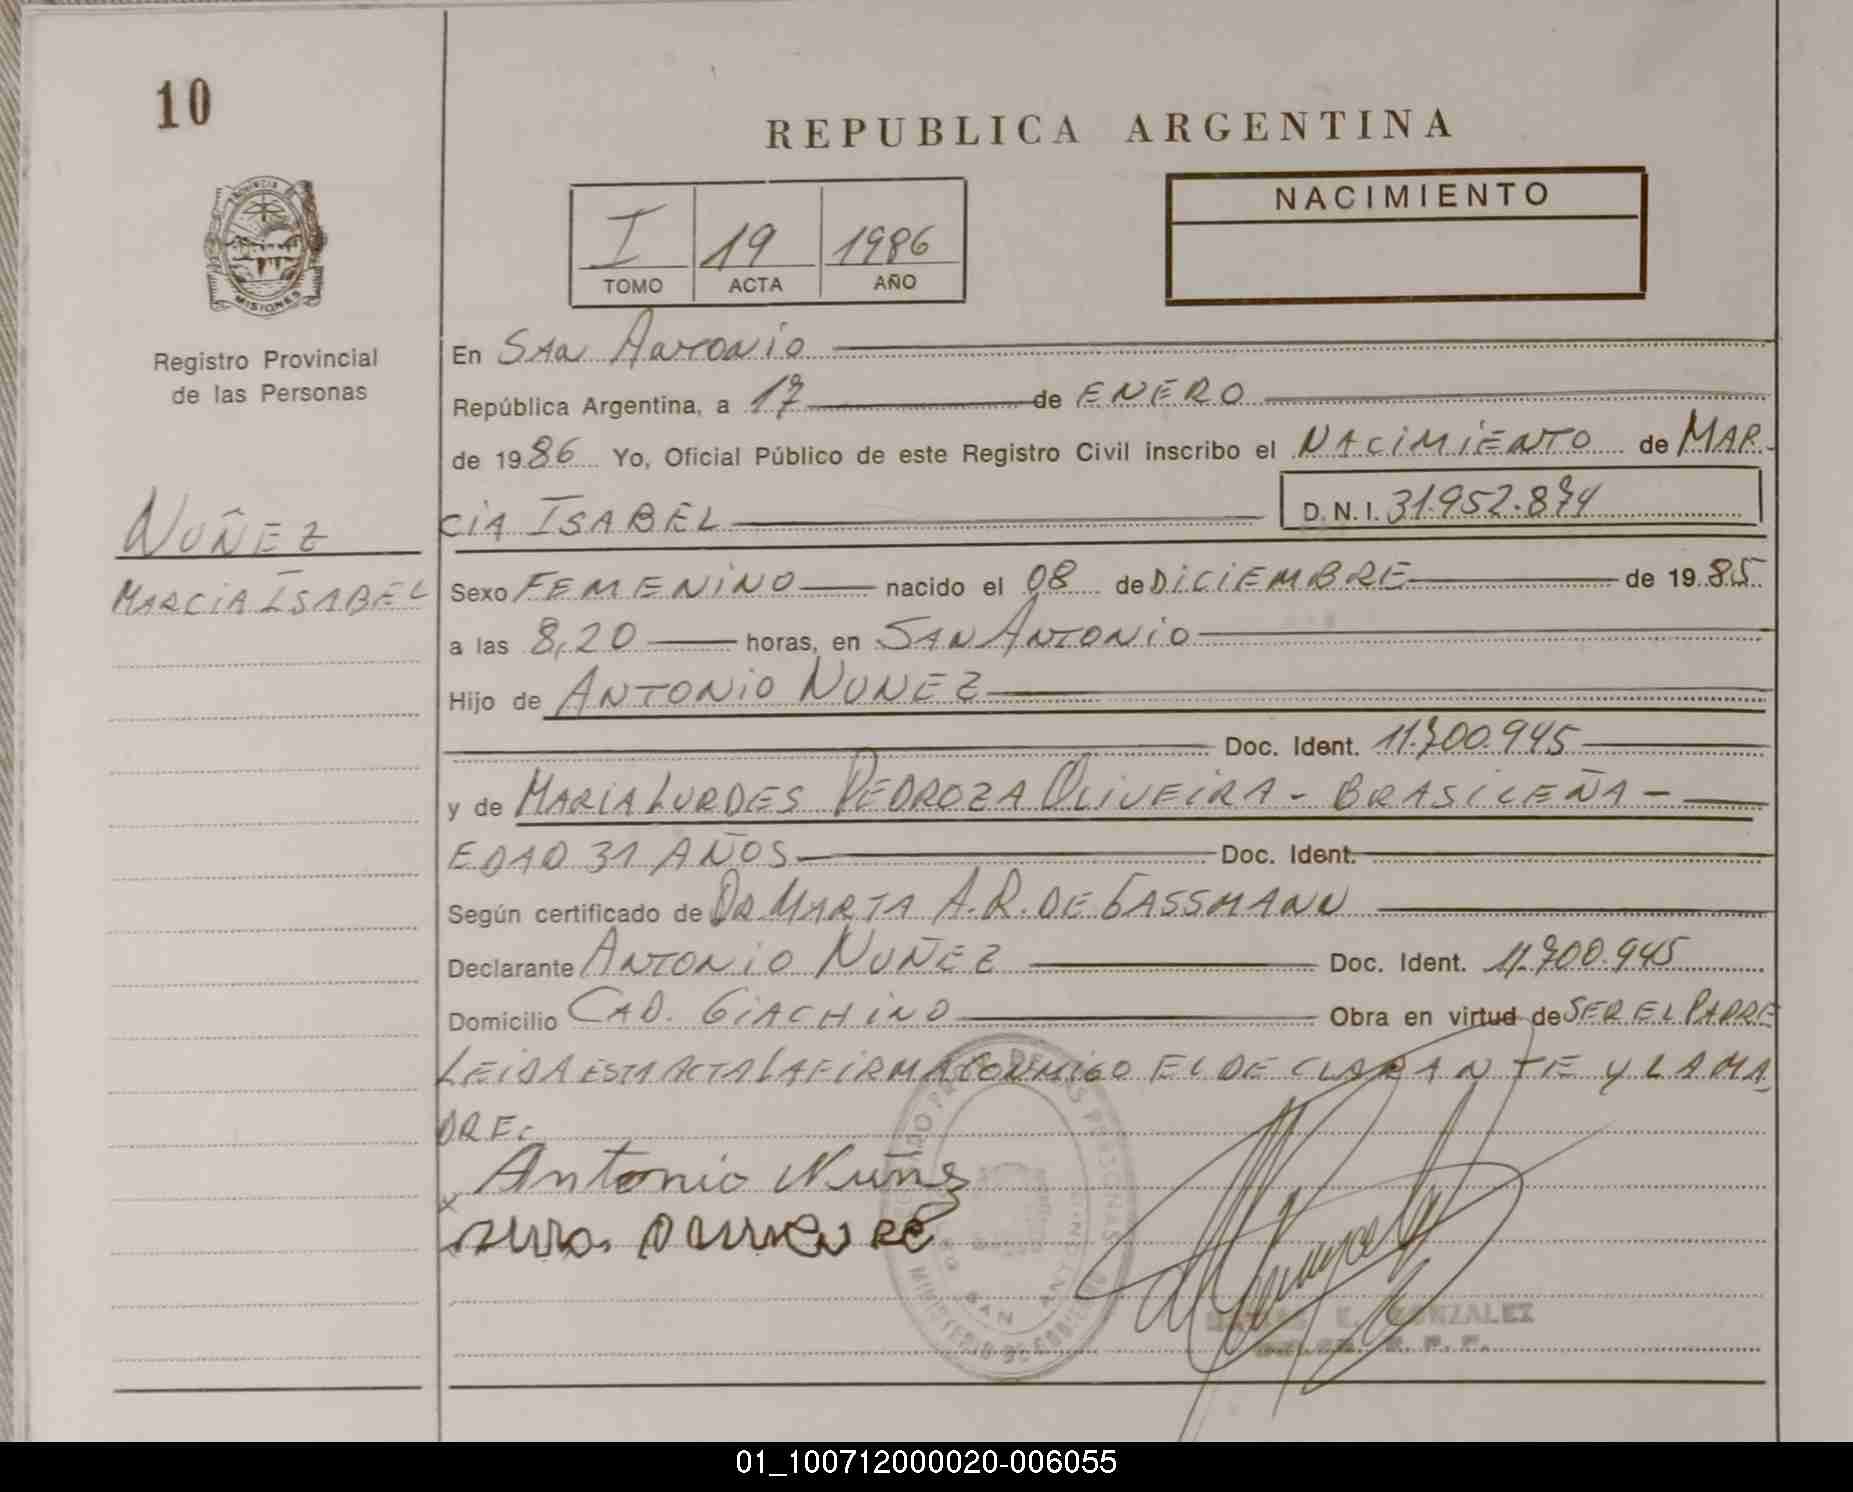 10
REPUBLICA ARGENTINA
PROVINCIA DE
MISIONES
I 19 1986
TOMO ACTA AÑO
NACIMIENTO
Registro Provincial
de las Personas
NUÑEZ
MARCIA ISABEL
En SAN ANTONIO
República Argentina, a 17 de ENERO
de 1986 Yo, Oficial Público de este Registro Civil inscribo el NACIMIENTO de MAR-
CIA ISABEL D.N.I. 31.952.874
Sexo FEMENINO nacido el 08 de DICIEMBRE de 1985
a las 8,20 horas, en SAN ANTONIO
Hijo de ANTONIO NUNEZ
Doc. Ident. 11.700.945
y de MARIA LURDES PEDROZA OLIVEIRA - BRASILEÑA -
EDAD 31 AÑOS Doc. Ident.
Según certificado de DRA MARTA A.R. DE GASSMANN
Declarante ANTONIO NUÑEZ Doc. Ident. 11.700.945
Domicilio CAD. GIACHINO Obra en virtud de SER EL PADRE
LEIDA ESTA ACTA LA FIRMA CONMIGO EL DECLARANTE Y LA MA-
DRE.
x Antonio Nuñez
DE LAS PERSONAS
SAN ANTONIO
MINISTERIO DE GOBIERNO
E. GONZALEZ
01_100712000020-006055